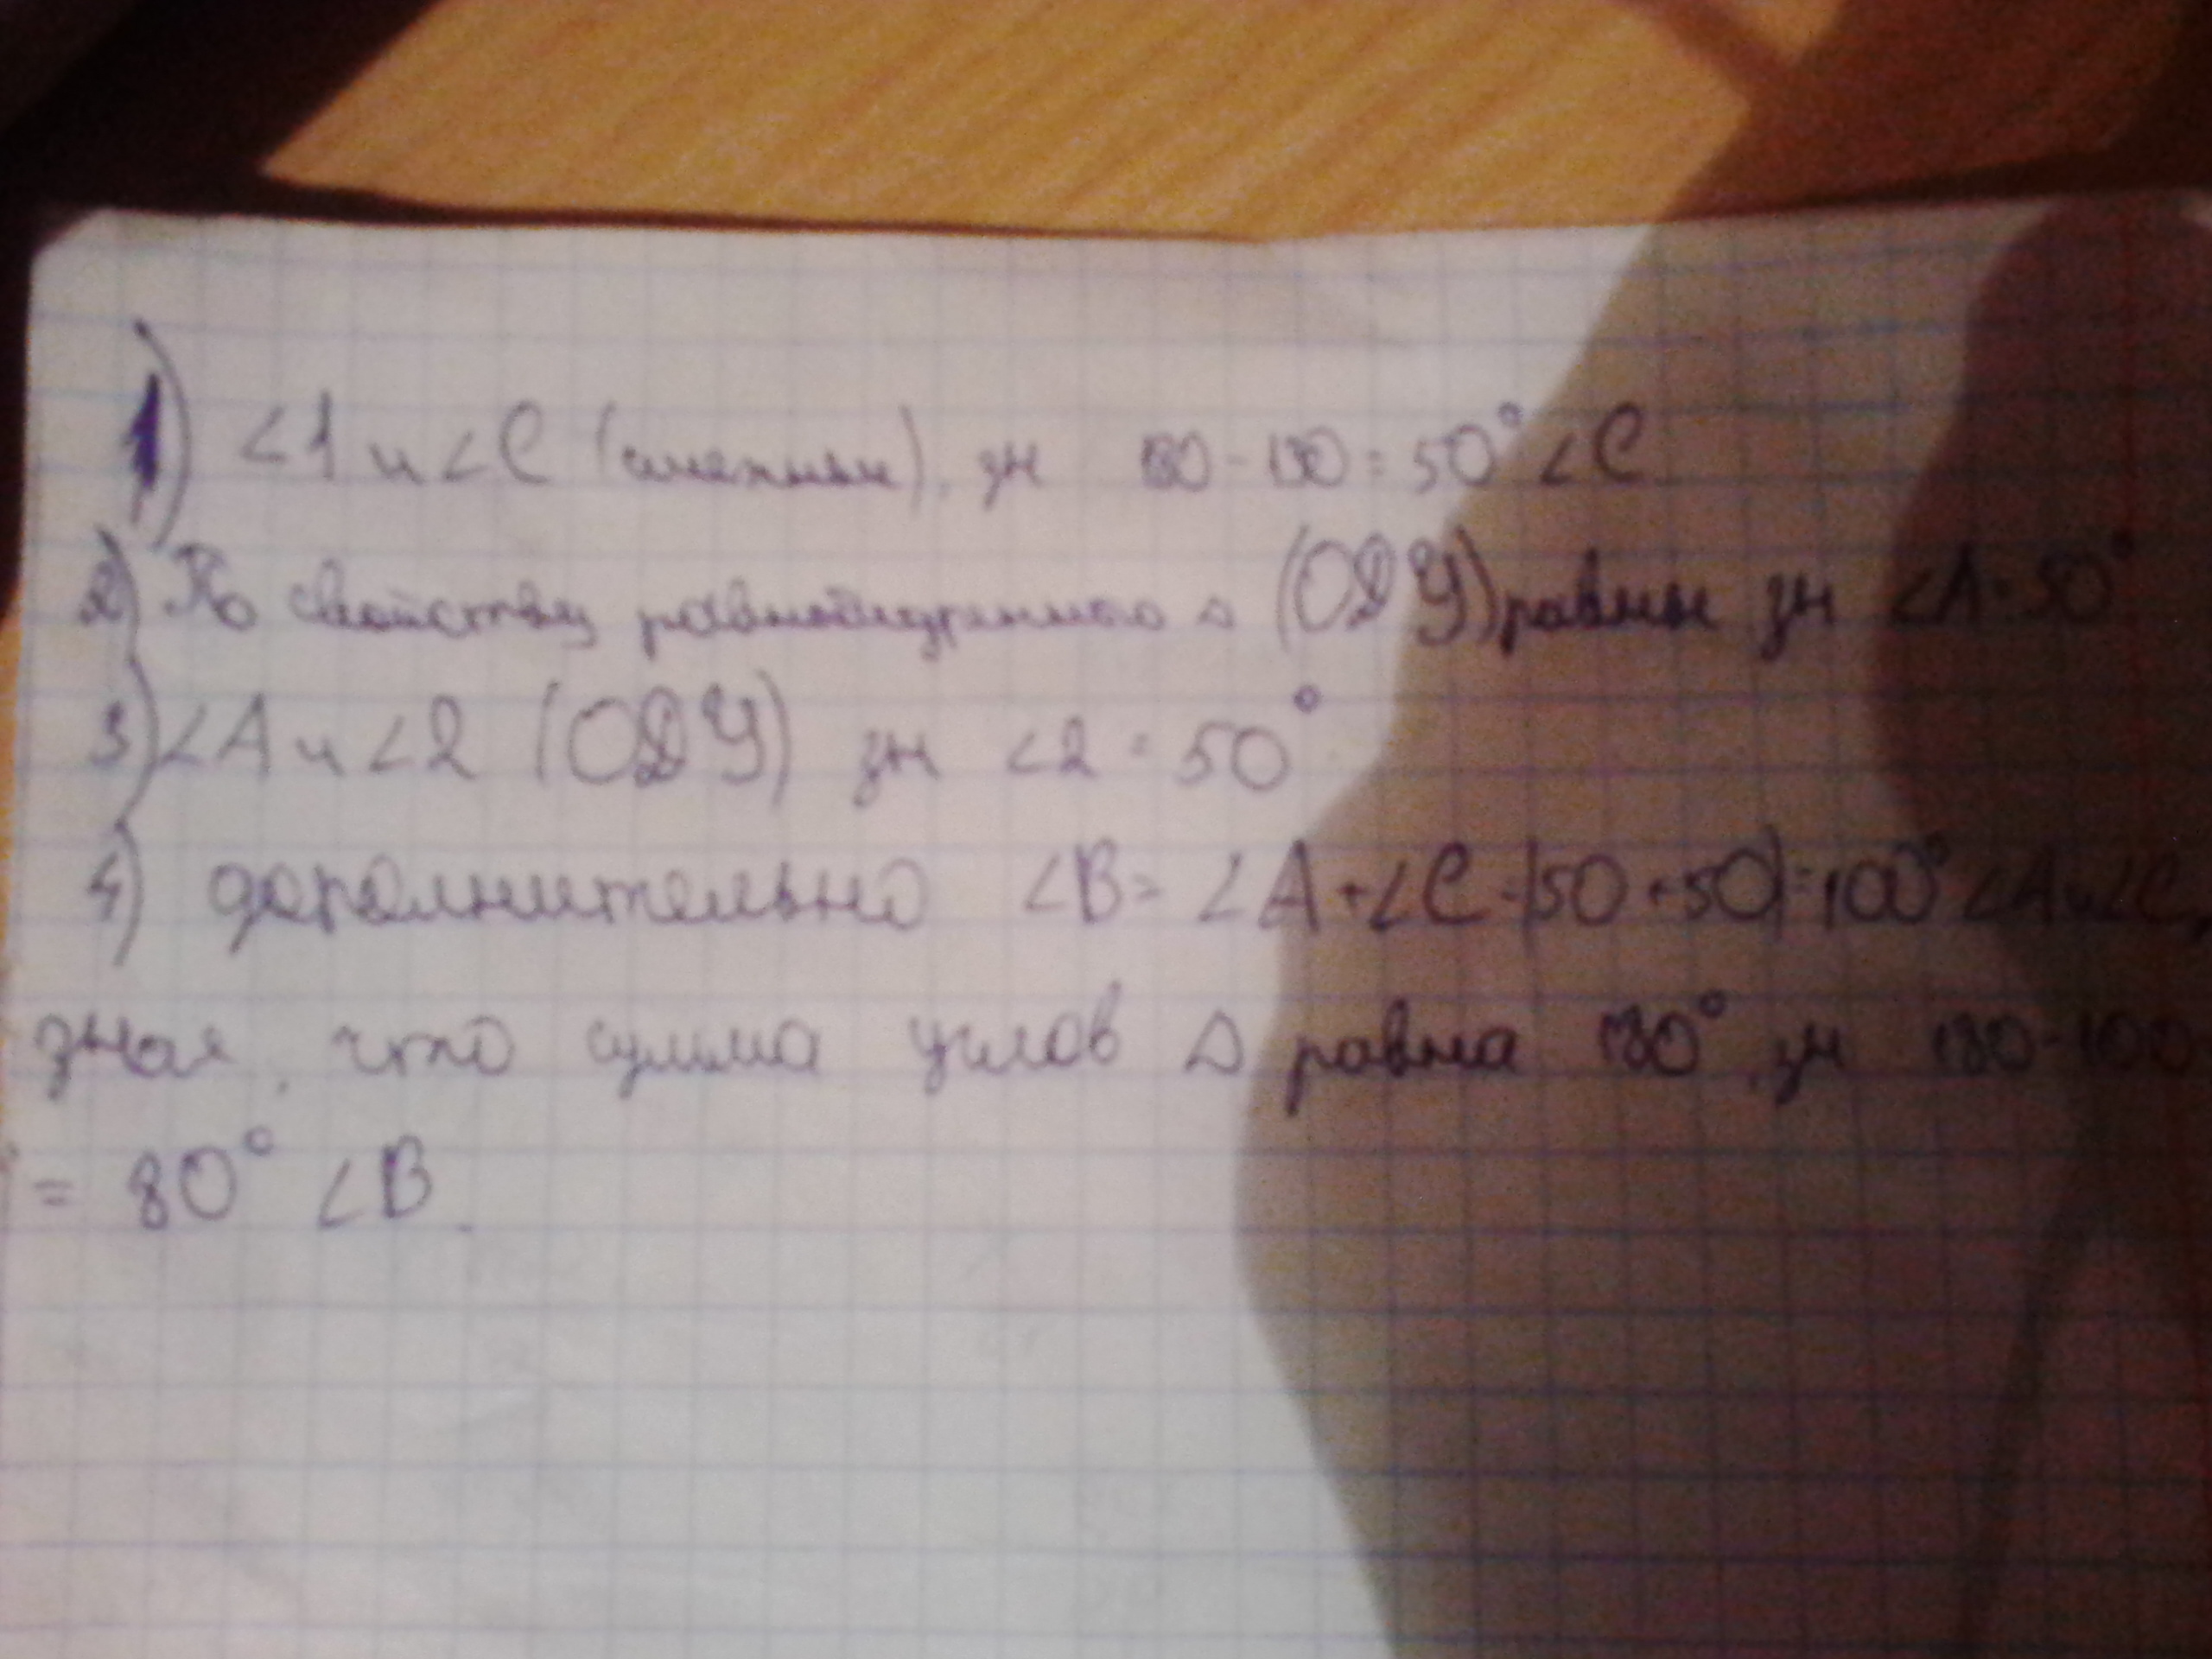 1) ∠1 и ∠C (смежные), зн 180-130=50° ∠C
2) По свойству равнобедренного △ (ОДУ) равны зн ∠A=50°
3) ∠A и ∠2 (ОДУ) зн ∠2=50°
4) дополнительно ∠B= ∠A+∠C=(50+50)=100° ∠A и ∠C,
зная, что сумма углов △ равна 180°, зн 180-100
= 80° ∠B.